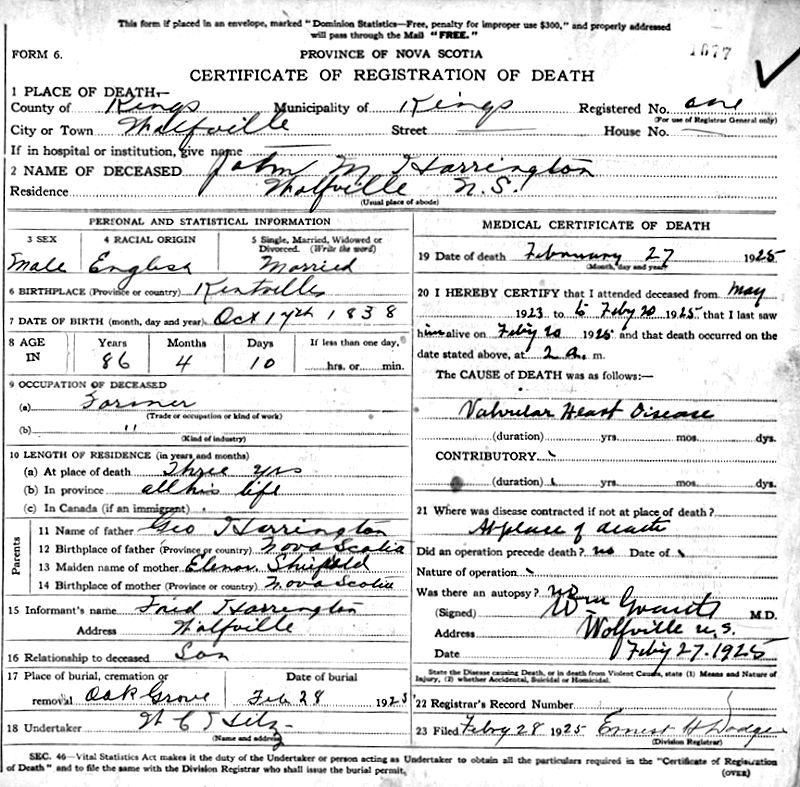 This form if placed in an envelope, marked "Dominion Statistics—Free, penalty for improper use $300," and properly addressed
will pass through the Mail "FREE."
FORM 6.
PROVINCE OF NOVA SCOTIA
1677
CERTIFICATE OF REGISTRATION OF DEATH
1 PLACE OF DEATH—
County of Kings Municipality of Kings Registered No. one
(For use of Registrar General only)
City or Town Wolfville Street House No.
If in hospital or institution, give name
2 NAME OF DECEASED John M Harrington
Residence Wolfville N.S.
(Usual place of abode)
PERSONAL AND STATISTICAL INFORMATION
3 SEX 4 RACIAL ORIGIN 5 Single, Married, Widowed or
Divorced. (Write the word)
Male English Married
6 BIRTHPLACE (Province or country) Kentville
7 DATE OF BIRTH (month, day and year) Oct 17th 1838
8 AGE IN Years Months Days If less than one day,
86 4 10 hrs. or min.
9 OCCUPATION OF DECEASED
(a) Farmer
(Trade or occupation or kind of work)
(b) "
(Kind of industry)
10 LENGTH OF RESIDENCE (in years and months)
(a) At place of death Three yrs
(b) In province all his life
(c) In Canada (if an immigrant)
Parents
11 Name of father Geo Harrington
12 Birthplace of father (Province or country) Nova Scotia
13 Maiden name of mother Elenor
14 Birthplace of mother (Province or country) Nova Scotia
15 Informant's name Fred Harrington
Address Wolfville
16 Relationship to deceased Son
17 Place of burial, cremation or Date of burial
removal Oak Grove Feb 28 1925
18 Undertaker
(Name and address)
MEDICAL CERTIFICATE OF DEATH
19 Date of death February 27 1925
(Month, day and year)
20 I HEREBY CERTIFY that I attended deceased from May
1923 to Feby 20 1925 that I last saw
him alive on Feby 20 1925 and that death occurred on the
date stated above, at 2 a. m.
The CAUSE of DEATH was as follows:—
Valvular Heart Disease
(duration) yrs. mos. dys.
CONTRIBUTORY
(duration) yrs. mos. dys.
21 Where was disease contracted if not at place of death?
At place of death
Did an operation precede death? no Date of
Nature of operation
Was there an autopsy? no
(Signed) Wm M.D.
Address Wolfville N.S.
Date Feby 27. 1925
State the Disease causing Death, or in death from Violent Causes, state (1) Means and Nature of
Injury, (2) whether Accidental, Suicidal or Homicidal.
22 Registrar's Record Number
23 Filed Febry 28 1925 Ernest H Dodge
(Division Registrar)
SEC. 46—Vital Statistics Act makes it the duty of the Undertaker or person acting as Undertaker to obtain all the particulars required in the "Certificate of Registration
of Death" and to file the same with the Division Registrar who shall issue the burial permit.
(OVER)